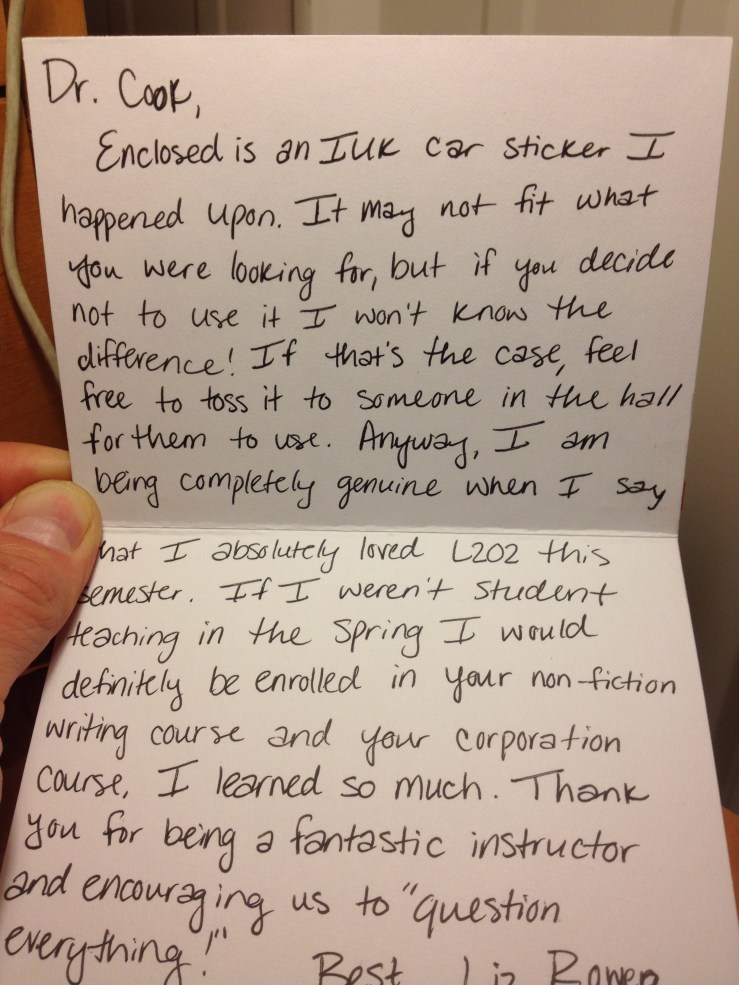 Dr. Cook,
Enclosed is an IUK car sticker I
happened upon. It may not fit what
you were looking for, but if you decide
not to use it I won't know the
difference! If that's the case, feel
free to toss it to someone in the hall
for them to use. Anyway, I am
being completely genuine when I say
that I absolutely loved L202 this
semester. If I weren't student
teaching in the Spring I would
definitely be enrolled in your non-fiction
writing course and your corporation
course. I learned so much. Thank
you for being a fantastic instructor
and encouraging us to "question
everything!"
Best, Liz